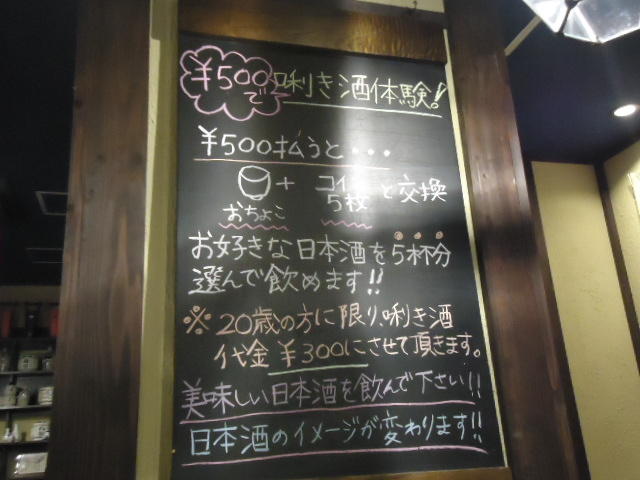 ¥500で 唎き酒体験!
¥500払うと・・・
+ コイン5枚と交換
おちょこ
お好きな日本酒を5杯分
選んで飲めます!!
※20歳の方に限り、唎き酒
代金¥300にさせて頂きます。
美味しい日本酒を飲んで下さい!!
日本酒のイメージが変わります!!